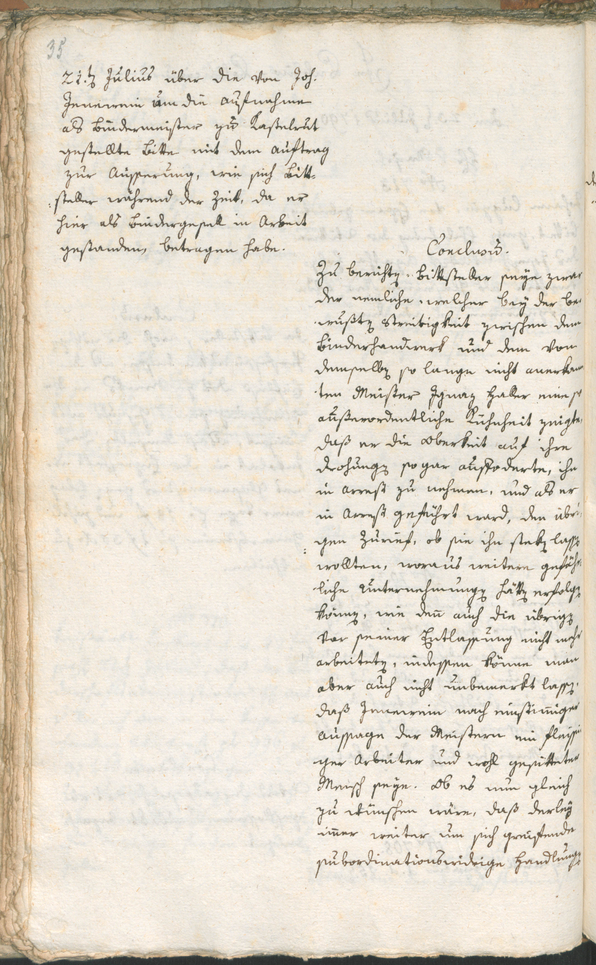 35
21t Julius über die von Joh.
Innerein um die Aufnahme
als Bindermeister zu Kastelrut
gestellte Bitte mit dem Auftrag
zur Äusserung, wie sich Bitt-
:steller während der Zeit, da er
hier als Bindergesel in Arbeit
gestanden, betragen habe.
Conclusum.
Zu berichten. Bittsteller seye zwar
der nemliche, welcher bey der be-
wußten Streitigkeit zwischen dem
Binderhandwerk und dem von
demselben so lange nicht anerkan-
ten Meister Ignaz Haller eine so
außerordentliche Kühnheit zeigte,
daß er die Oberkeit auf ihre
Drohungen sogar aufoderte, ihn
in Arrest zu nehmen, und als er
in Arrest geführt ward, den übri-
gen zurief, ob sie ihn steken lassen
wollten, woraus weitere gefähr-
liche Unternehmungen hätten erfolgen
können, wie denn auch die übrigen
vor seiner Entlassung nicht mehr
arbeiteten, indessen könne man
aber auch nicht unbemerkt lassen,
daß Innerein nach einstimmiger
Aussage der Meistern ein fleissi-
ger Arbeiter und wohl gesitteter
Mensch seye. Ob es nun gleich
zu wünschen wäre, daß derley
immer weiter um sich greiffende
subordinationswidrige Handlungen